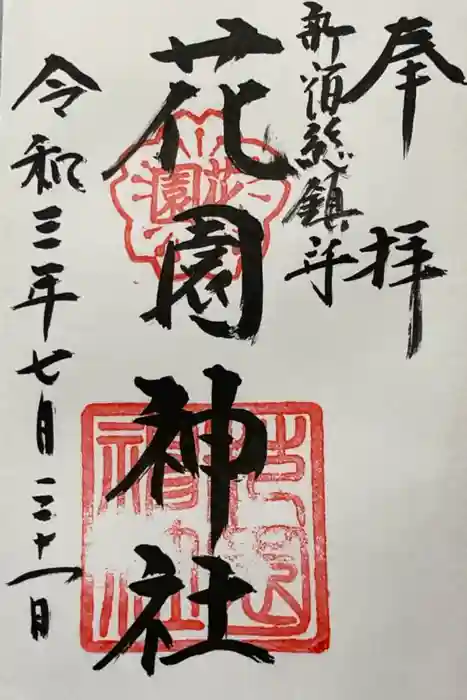 奉拝
新宿総鎮守
花園神社
令和三年七月三十一日
花園